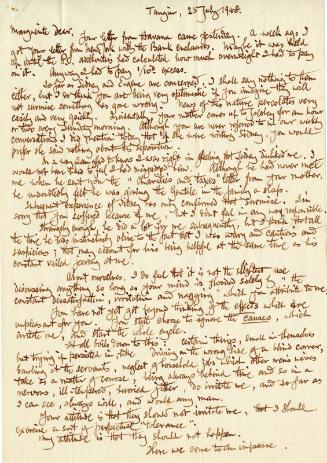 Tangier, 25 July 1948.
Marguerite dear,
Your letter from Havana came yesterday. A week ago I
got your letter from New York with the Bank enclosures. Maybe it was held
up until the P.O. authorities had calculated how much overweight I had to pay
on it. Anyway I had to pay excess.
So far as Sidney and are concerned, I shall say nothing to them
either, but I do think you are being optimistic if you imagine they will
not surmise something has gone wrong. News of this nature percolates very
easily and very quickly. Incidentally your mother comes up to for an hour
or two every Sunday morning. Although you are never referred to in our weekly
conversations I did mention today that if she were writing Sidney, you would
prefer she said nothing about the separation.
In a way I'm glad to know I was right in feeling that Sidney disliked me. I
would not have liked to feel I had misjudged him. Although he had never met
me when he sent you the " " letter from your mother,
he undoubtedly felt he was giving the Gentile in the family a slap.
Subsequent experience of Sidney has only confirmed that surmise. I'm
sorry that you suffered because of me, but I don't feel in any way responsible.
Strangely enough, he did a lot for me subsequently, but I think that all
the time he was insensitively alive to the fact that I was noting his actions and
suspicious; that may account for his being helpful at the same time as his
constant veiled sneering at me.
About ourselves. I do feel that it is not the slightest use
discussing anything so long as your mind is flooded solely by the
constant dissatisfaction, irritation and nagging which you attribute to me.
You have not yet got beyond thinking of the effects which are
unpleasant for you. You still choose to ignore the causes, which
irritate me, and start the whole cycle.
It all boils down to this: certain things, small in themselves
but trying if persisted in, like driving on the wrong side of a blind corner,
bawling at the servants, neglect of household jobs which other men's wives
take as a matter of course, being always behind time and so in a
nervous, ill-tempered, hurried, do irritate me, and so far as
I can see, always will, and would any man.
Your attitude is that they should not irritate me, that I should
exercise a sort of perpetual "tolerance".
My attitude is that they should not happen.
There we come to an impasse.